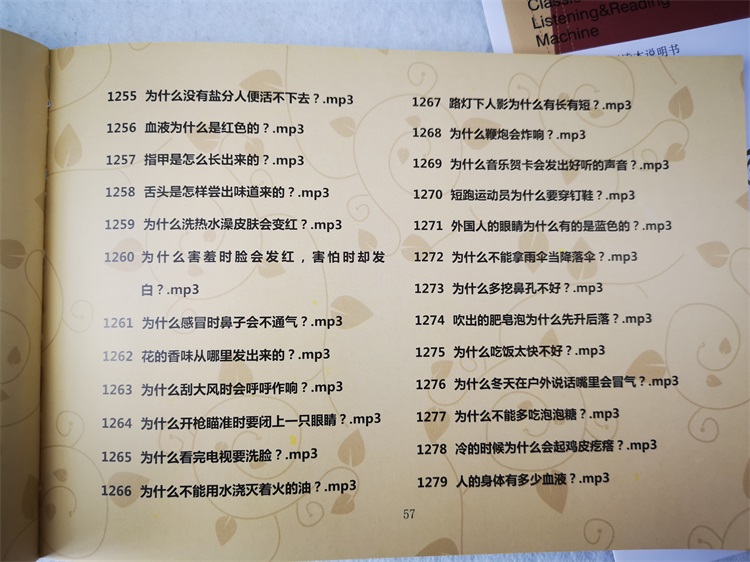 Listening&Reading
Machine
说明书
1255 为什么没有盐分人便活不下去？.mp3
1256 血液为什么是红色的？.mp3
1257 指甲是怎么长出来的？.mp3
1258 舌头是怎样尝出味道来的？.mp3
1259 为什么洗热水澡皮肤会变红？.mp3
1260 为什么害羞时脸会发红，害怕时却发
白？.mp3
1261 为什么感冒时鼻子会不通气？.mp3
1262 花的香味从哪里发出来的？.mp3
1263 为什么刮大风时会呼呼作响？.mp3
1264 为什么开枪瞄准时要闭上一只眼睛？.mp3
1265 为什么看完电视要洗脸？.mp3
1266 为什么不能用水浇灭着火的油？.mp3
1267 路灯下人影为什么有长有短？.mp3
1268 为什么鞭炮会炸响？.mp3
1269 为什么音乐贺卡会发出好听的声音？.mp3
1270 短跑运动员为什么要穿钉鞋？.mp3
1271 外国人的眼睛为什么有的是蓝色的？.mp3
1272 为什么不能拿雨伞当降落伞？.mp3
1273 为什么多挖鼻孔不好？.mp3
1274 吹出的肥皂泡为什么先升后落？.mp3
1275 为什么吃饭太快不好？.mp3
1276 为什么冬天在户外说话嘴里会冒气？.mp3
1277 为什么不能多吃泡泡糖？.mp3
1278 冷的时候为什么会起鸡皮疙瘩？.mp3
1279 人的身体有多少血液？.mp3
57